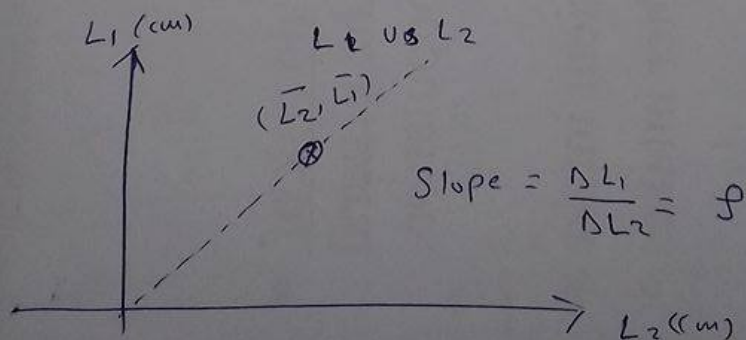 L1 (cm)
L1 vs L2
(L̄2, L̄1)
Slope = ΔL1/ΔL2 = ρ
L2 (cm)